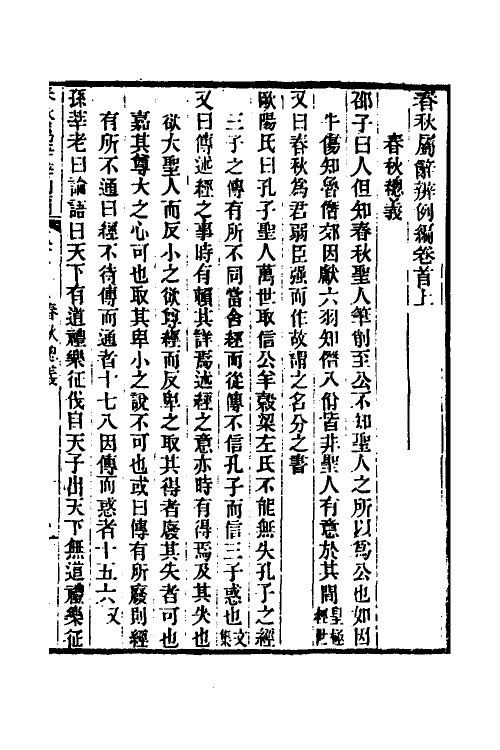 春秋屬辭辨例編卷首上
春秋總義
邵子曰人但知春秋聖人筆削至公不知聖人之所以爲公也如因
牛傷知魯僭郊因獻六羽知僭八佾皆非聖人有意於其間皇極經世
又曰春秋爲君弱臣强而作故謂之名分之書
歐陽氏曰孔子聖人萬世取信公羊榖梁左氏不能無失孔子之經
三子之傳有所不同當舍經而從傳不信孔子而信三子惑也文集
又曰傳述經之事時有頼其詳焉述經之意亦時有得焉及其失也
欲大聖人而反小之欲尊經而反卑之取其得者廢其失者可也
嘉其尊大之心可也取其卑小之說不可也或曰傳有所廢則經
有所不通曰經不待傳而通者十七八因傳而惑者十五六又
孫莘老曰論語曰天下有道禮樂征伐自天子出天下無道禮樂征
春秋總義